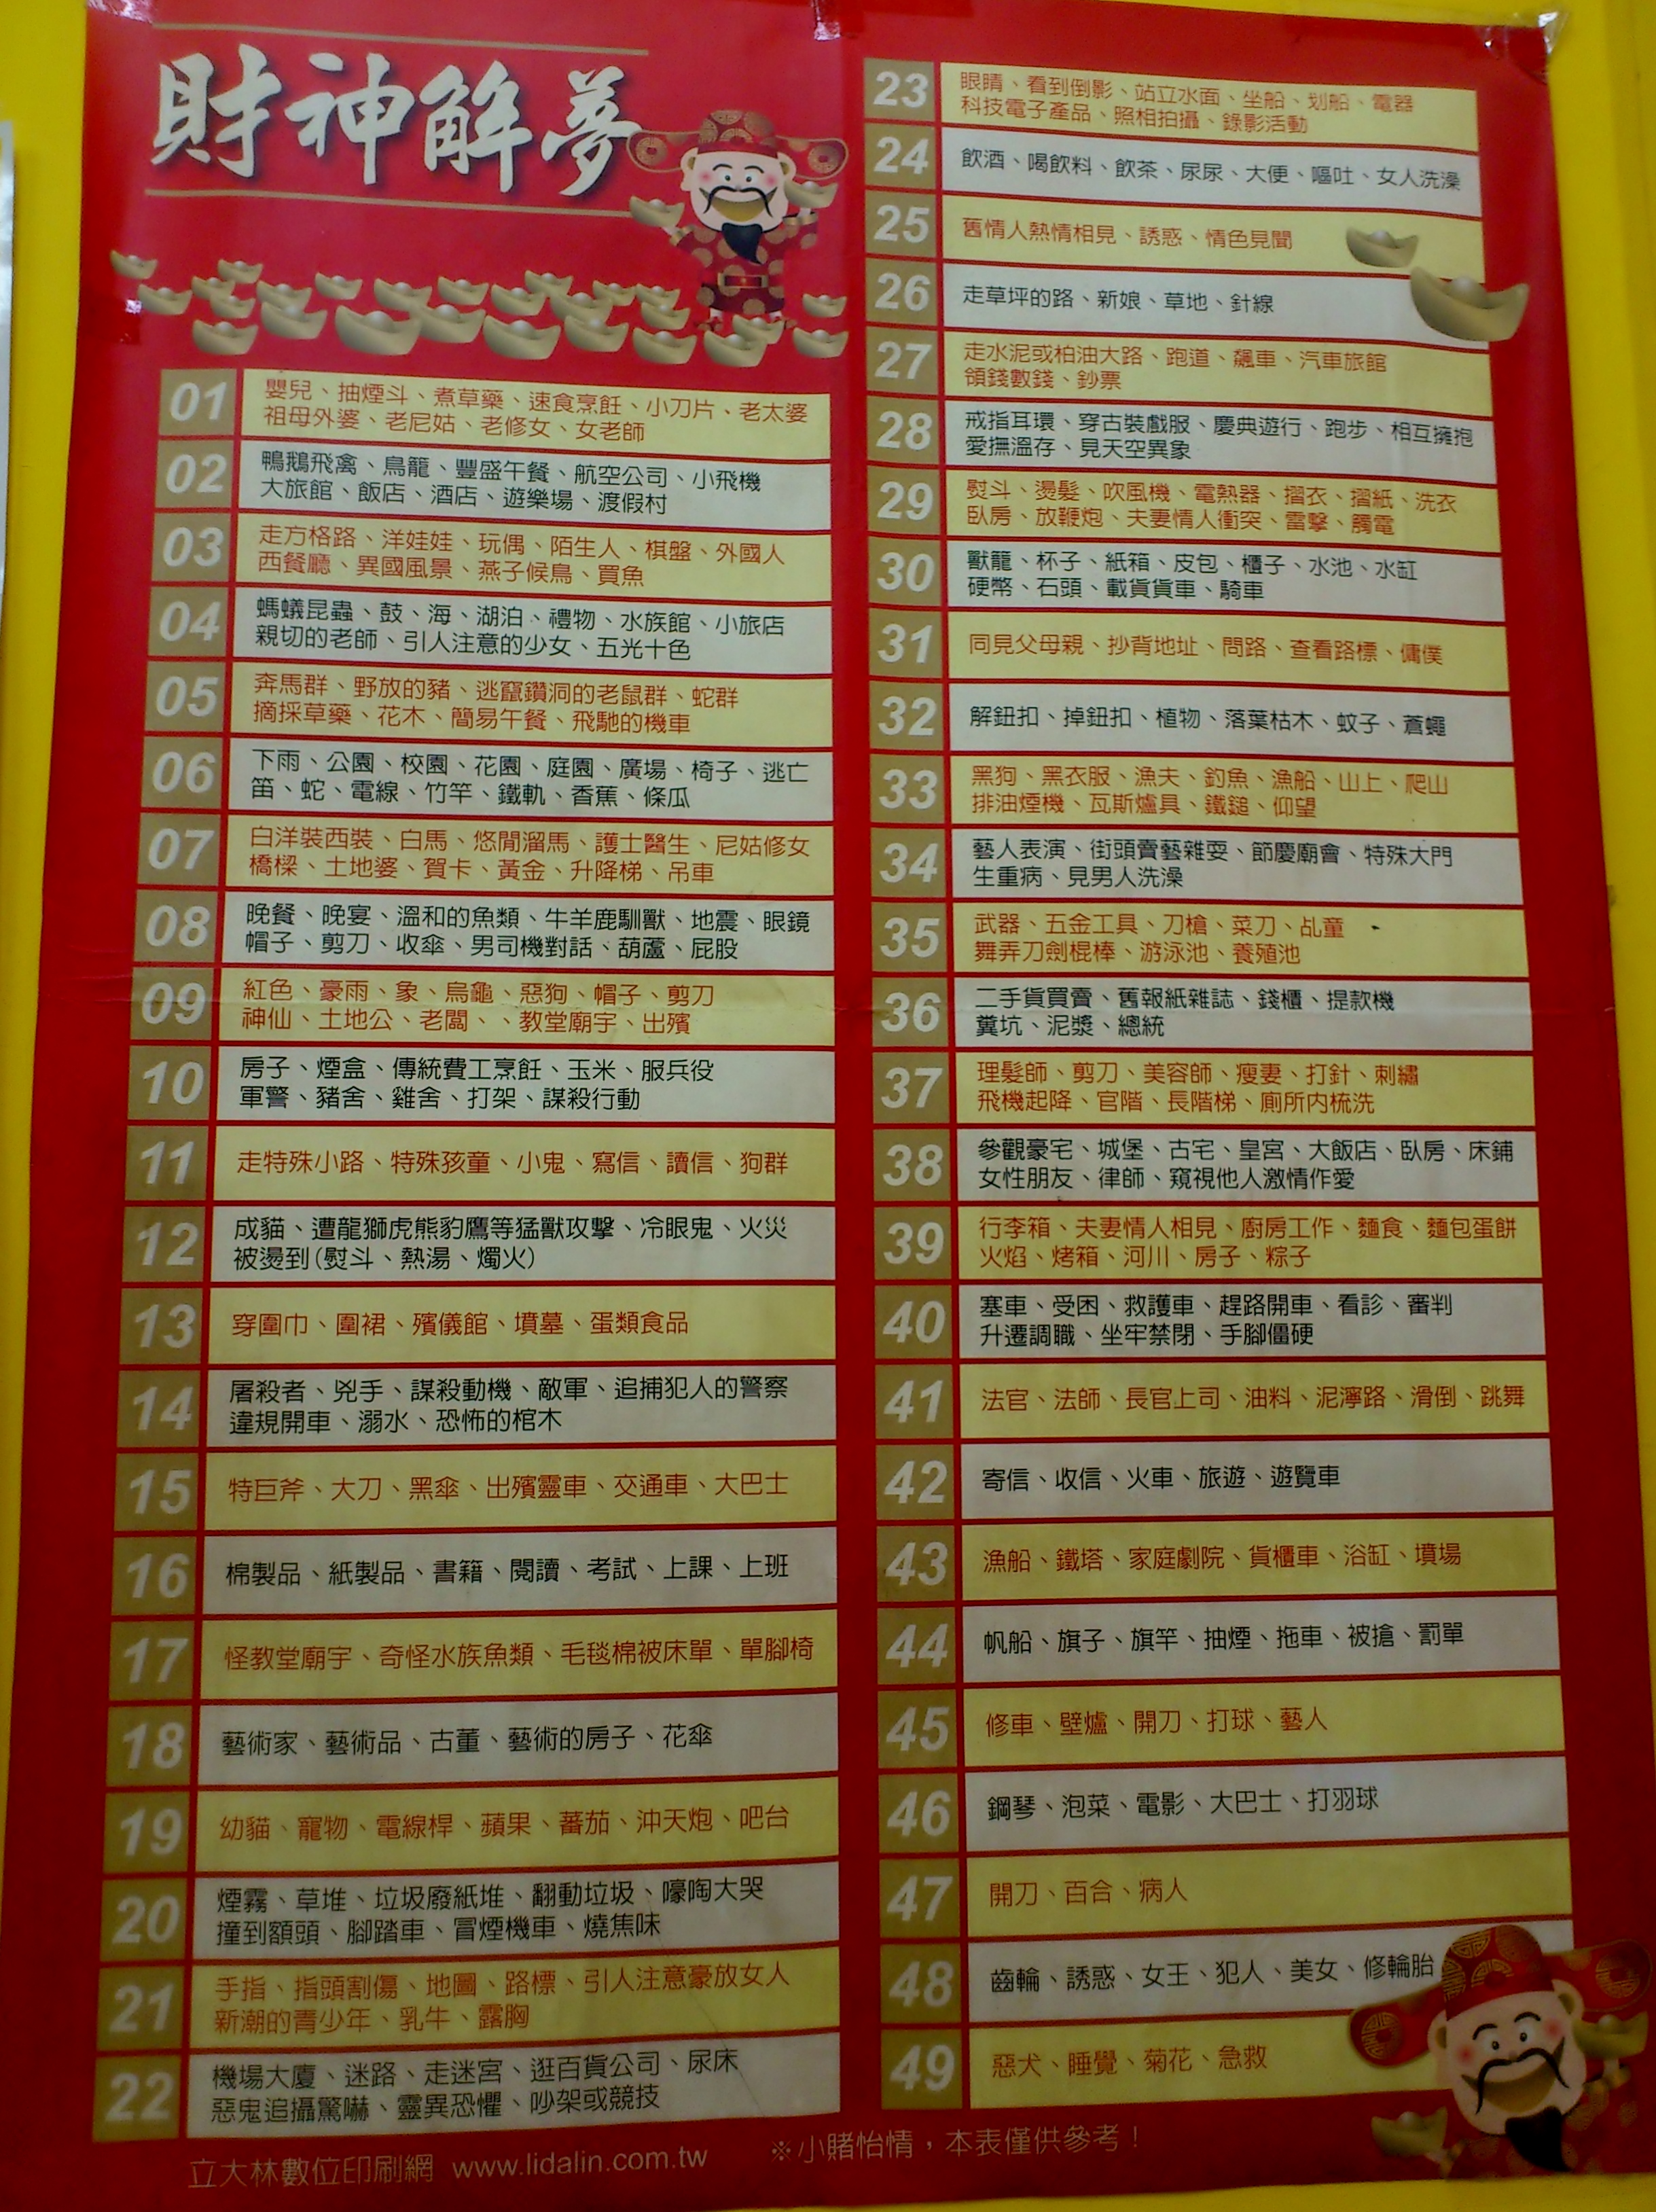 財神解夢
01
嬰兒、抽煙斗、煮草藥、速食烹飪、小刀片、老太婆
祖母外婆、老尼姑、老修女、女老師
02
鴨鵝飛禽、鳥籠、豐盛午餐、航空公司、小飛機
大旅館、飯店、酒店、遊樂場、渡假村
03
走方格路、洋娃娃、玩偶、陌生人、棋盤、外國人
西餐廳、異國風景、燕子候鳥、買魚
04
螞蟻昆蟲、鼓、海、湖泊、禮物、水族館、小旅店
親切的老師、引人注意的少女、五光十色
05
奔馬群、野放的豬、逃竄鑽洞的老鼠群、蛇群
摘採草藥、花木、簡易午餐、飛馳的機車
06
下雨、公園、校園、花園、庭園、廣場、椅子、逃亡
笛、蛇、電線、竹竿、鐵軌、香蕉、條瓜
07
白洋裝西裝、白馬、悠閒溜馬、護士醫生、尼姑修女
橋樑、土地婆、賀卡、黃金、升降梯、吊車
08
晚餐、晚宴、溫和的魚類、牛羊鹿馴獸、地震、眼鏡
帽子、剪刀、收傘、男司機對話、葫蘆、屁股
09
紅色、豪雨、象、烏龜、惡狗、帽子、剪刀
神仙、土地公、老闆、、教堂廟宇、出殯
10
房子、煙盒、傳統費工烹飪、玉米、服兵役
軍警、豬舍、雞舍、打架、謀殺行動
11
走特殊小路、特殊孩童、小鬼、寫信、讀信、狗群
12
成貓、遭龍獅虎熊豹鷹等猛獸攻擊、冷眼鬼、火災
被燙到(熨斗、熱湯、燭火)
13
穿圍巾、圍裙、殯儀館、墳墓、蛋類食品
14
屠殺者、兇手、謀殺動機、敵軍、追捕犯人的警察
違規開車、溺水、恐怖的棺木
15
特巨斧、大刀、黑傘、出殯靈車、交通車、大巴士
16
棉製品、紙製品、書籍、閱讀、考試、上課、上班
17
怪教堂廟宇、奇怪水族魚類、毛毯棉被床單、單腳椅
18
藝術家、藝術品、古董、藝術的房子、花傘
19
幼貓、寵物、電線桿、蘋果、蕃茄、沖天炮、吧台
20
煙霧、草堆、垃圾廢紙堆、翻動垃圾、嚎啕大哭
撞到額頭、腳踏車、冒煙機車、燒焦味
21
手指、指頭割傷、地圖、路標、引人注意豪放女人
新潮的青少年、乳牛、露胸
22
機場大廈、迷路、走迷宮、逛百貨公司、尿床
惡鬼追攝驚嚇、靈異恐懼、吵架或競技
23
眼睛、看到倒影、站立水面、坐船、划船、電器
科技電子產品、照相拍攝、錄影活動
24
飲酒、喝飲料、飲茶、尿尿、大便、嘔吐、女人洗澡
25
舊情人熱情相見、誘惑、情色見聞
26
走草坪的路、新娘、草地、針線
27
走水泥或柏油大路、跑道、飆車、汽車旅館
領錢數錢、鈔票
28
戒指耳環、穿古裝戲服、慶典遊行、跑步、相互擁抱
愛撫溫存、見天空異象
29
熨斗、燙髮、吹風機、電熱器、摺衣、摺紙、洗衣
臥房、放鞭炮、夫妻情人衝突、雷擊、觸電
30
獸籠、杯子、紙箱、皮包、櫃子、水池、水缸
硬幣、石頭、載貨貨車、騎車
31
同見父母親、抄背地址、問路、查看路標、傭僕
32
解鈕扣、掉鈕扣、植物、落葉枯木、蚊子、蒼蠅
33
黑狗、黑衣服、漁夫、釣魚、漁船、山上、爬山
排油煙機、瓦斯爐具、鐵鎚、仰望
34
藝人表演、街頭賣藝雜耍、節慶廟會、特殊大門
生重病、見男人洗澡
35
武器、五金工具、刀槍、菜刀、乩童
舞弄刀劍棍棒、游泳池、養殖池
36
二手貨買賣、舊報紙雜誌、錢櫃、提款機
糞坑、泥漿、總統
37
理髮師、剪刀、美容師、瘦妻、打針、刺繡
飛機起降、官階、長階梯、廁所內梳洗
38
參觀豪宅、城堡、古宅、皇宮、大飯店、臥房、床鋪
女性朋友、律師、窺視他人激情作愛
39
行李箱、夫妻情人相見、廚房工作、麵食、麵包蛋餅
火焰、烤箱、河川、房子、粽子
40
塞車、受困、救護車、趕路開車、看診、審判
升遷調職、坐牢禁閉、手腳僵硬
41
法官、法師、長官上司、油料、泥濘路、滑倒、跳舞
42
寄信、收信、火車、旅遊、遊覽車
43
漁船、鐵塔、家庭劇院、貨櫃車、浴缸、墳場
44
帆船、旗子、旗竿、抽煙、拖車、被搶、罰單
45
修車、壁爐、開刀、打球、藝人
46
鋼琴、泡菜、電影、大巴士、打羽球
47
開刀、百合、病人
48
齒輪、誘惑、女王、犯人、美女、修輪胎
49
惡犬、睡覺、菊花、急救
立大林數位印刷網 www.lidalin.com.tw
※小賭怡情，本表僅供參考！